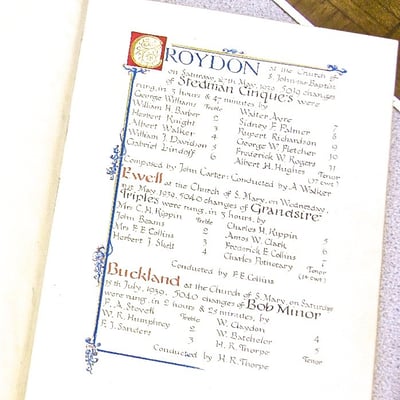 CROYDON at the Church of
S. John the Baptist
on Saturday, 6th May, 1939, 5019 changes
of Stedman Cinques were
rung, in 3 hours & 47 minutes by
George Williams Treble Walter Ayre 7
William H. Barber 2 Sidney F. Palmer 8
Herbert Knight 3 Rupert Richardson 9
Albert Walker 4 George W. Fletcher 10
William J. Davidson 5 Frederick W. Rogers 11
Gabriel Lindoff 6 Albert H. Hughes Tenor
Composed by John Carter: Conducted by A. Walker
Ewell at the Church of S. Mary, on Wednesday,
May 1939, 5040 changes of Grandsire
Triples were rung, in 3 hours, by
Mrs C. H. Kippin Treble Charles H. Kippin 5
John Beams 2 Amos W. Clark 6
Mrs F. E. Collins 3 Frederick E. Collins 7
Herbert J. Skelt 4 Charles Pothecary Tenor
Conducted by F. E. Collins
Buckland at the Church of S. Mary, on Saturday
July, 1939, 5040 changes of Bob Minor
were rung, in 2 hours & 23 minutes, by
F. A. Stovell Treble W. Claydon 4
W. R. Humphrey 2 W. Batchelor 5
F. J. Sanders 3 H. R. Thorpe Tenor
Conducted by H. R. Thorpe